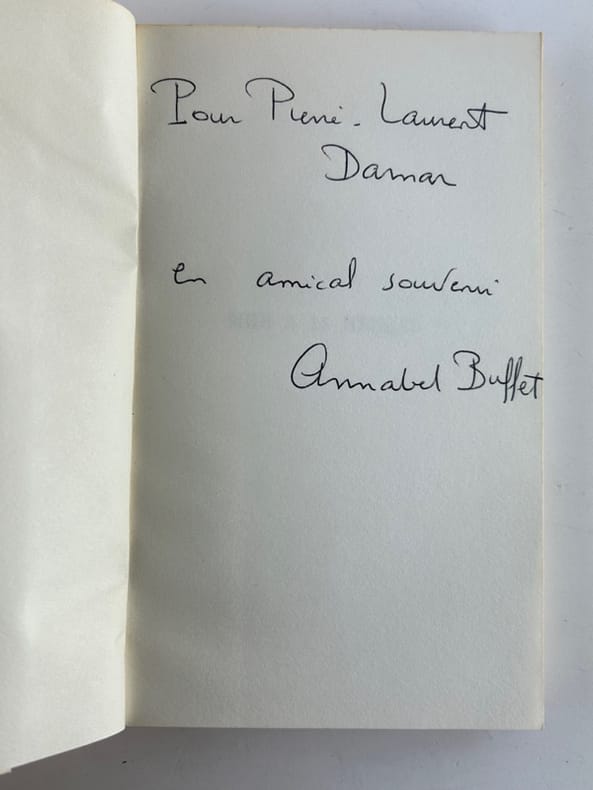 Pour Pierre-Laurent
Damar
en amical souvenir
Annabel Buffet